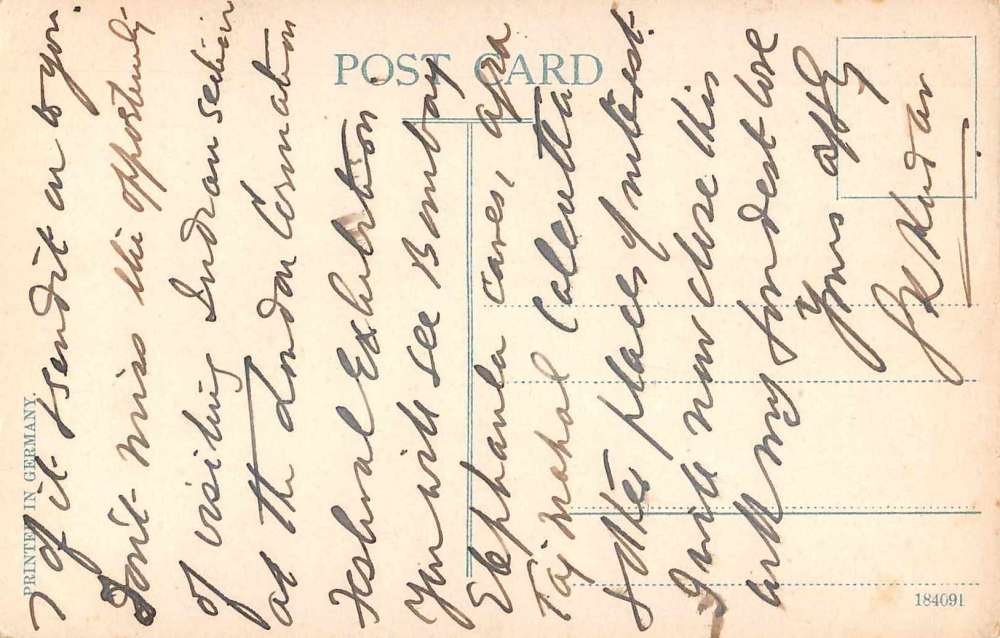 POST CARD
PRINTED IN GERMANY.
184091
of it & send it on to you.
Don't miss the opportunity
of visiting Indian section
at the London Coronation
Festival Exhibition
You will see Bombay
Elephanta caves, Agra
Tajmahal Calcutta
& other places of interest.
I will now close this
with my fondest love
Yours affly